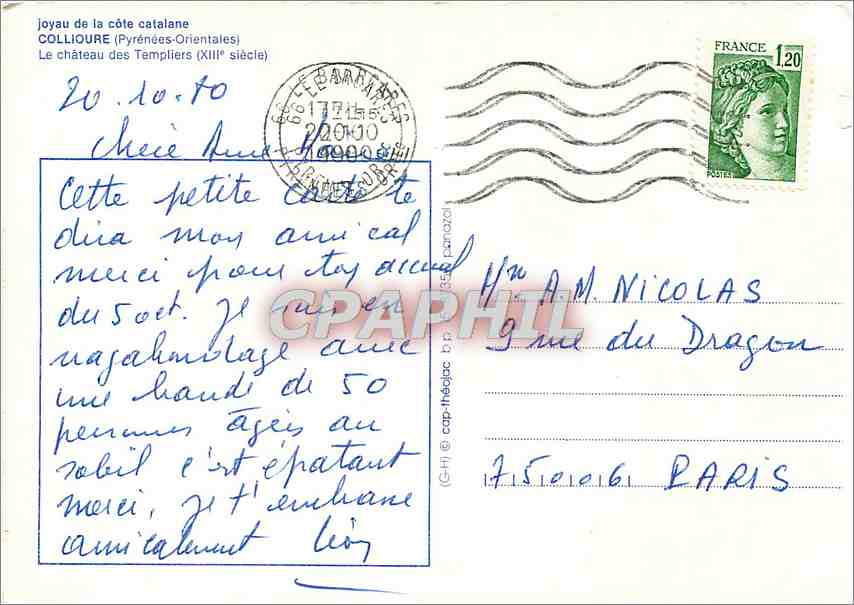 joyau de la côte catalane
COLLIOURE (Pyrénées-Orientales)
Le château des Templiers (XIIIe siècle)
FRANCE 1,20
POSTES
66 LE BARCARES
20.10.80
Chère Anne
Cette petite carte te
dira mon amical
merci pour ton accueil
du 5 oct. Je suis en
vagabondage avec
une bande de 50
personnes âgées au
soleil c'est épatant
merci, je t'embrasse
amicalement Léon
CPAPHIL
(G-H) © cap-théojac b.p. panazol
Mme A.M. NICOLAS
9 rue du Dragon
75006 PARIS